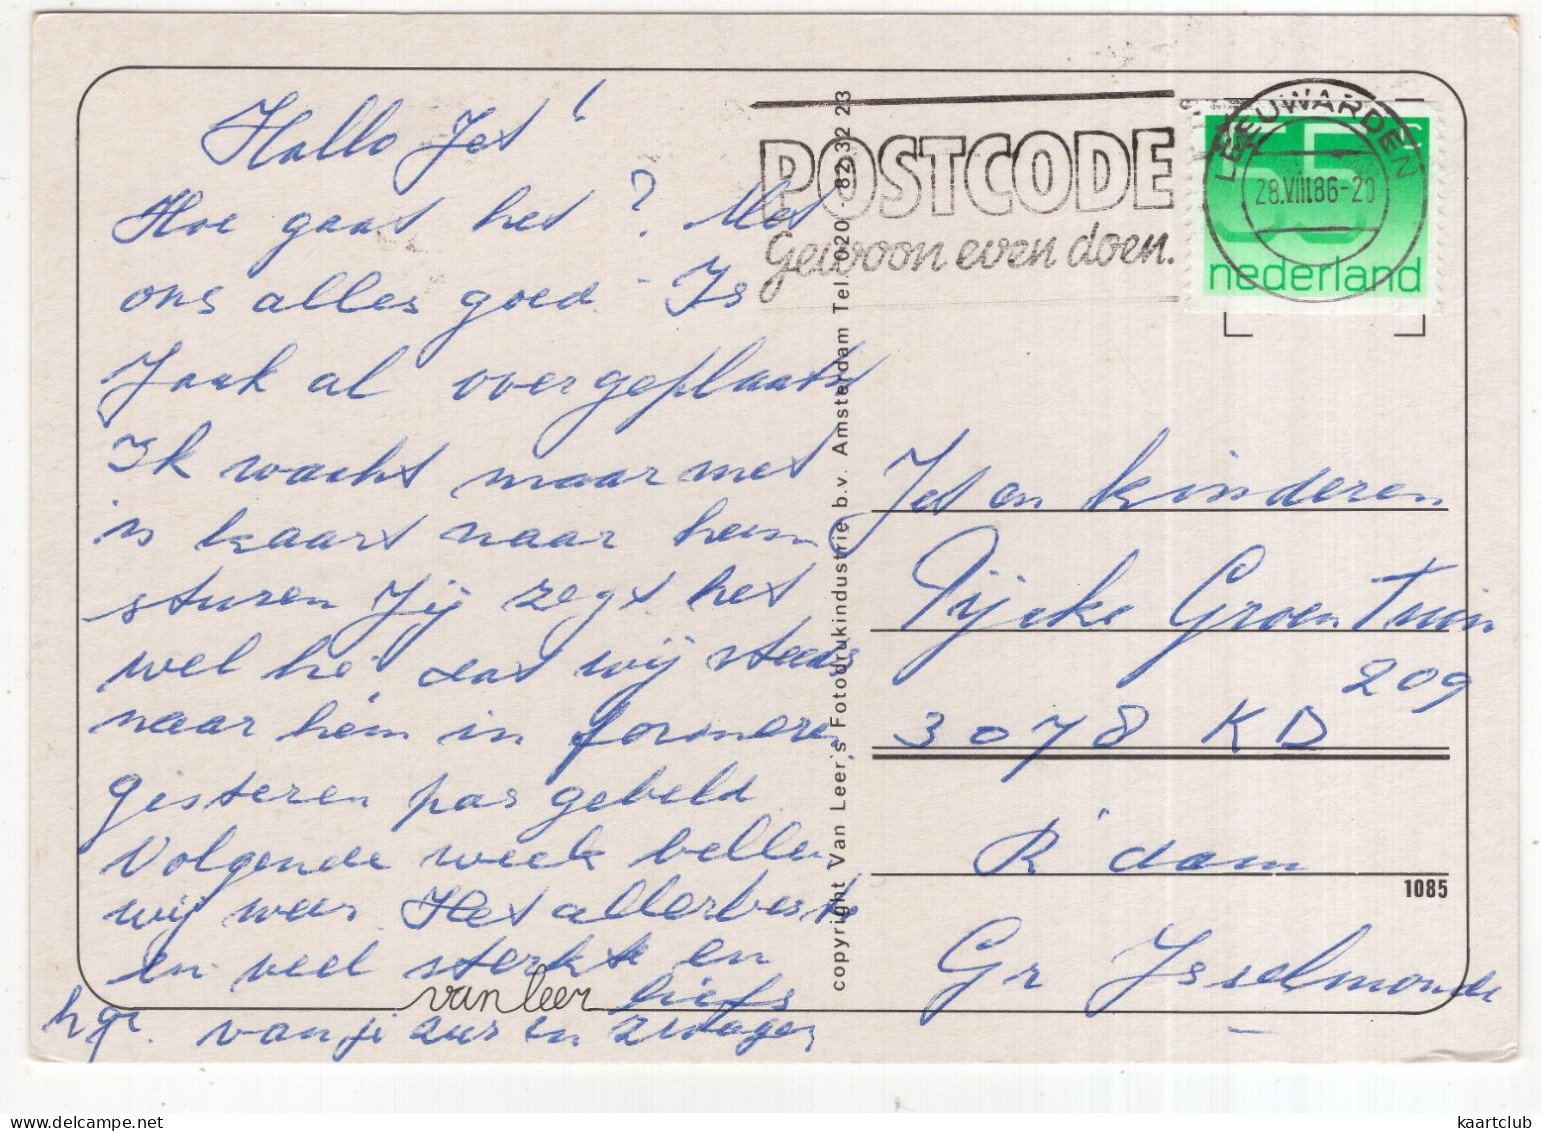 Hallo Jet!
Hoe gaat het? Met
ons alles goed. Is
Jaak al overgeplaatst
Ik wacht maar met
'n kaart naar hem
sturen Jij zegt het
wel hé dat wij steeds
naar hém in formeren
gisteren pas gebeld
Volgende week bellen
wij weer Het allerbeste
en veel sterkte en
liefs
hgr. van je zus en zwager
van leer
copyright Van Leer's Fotodrukindustrie b.v. Amsterdam Tel. 020 - 82 32 23
POSTCODE
Gewoon even doen.
LEEUWARDEN
28.VIII.86-20
55 c
nederland
Jet en kinderen
Pijcke Groen Tuin
209
3078 KD
R'dam
1085
Gr IJsselmonde
kaartclub / delcampe.net